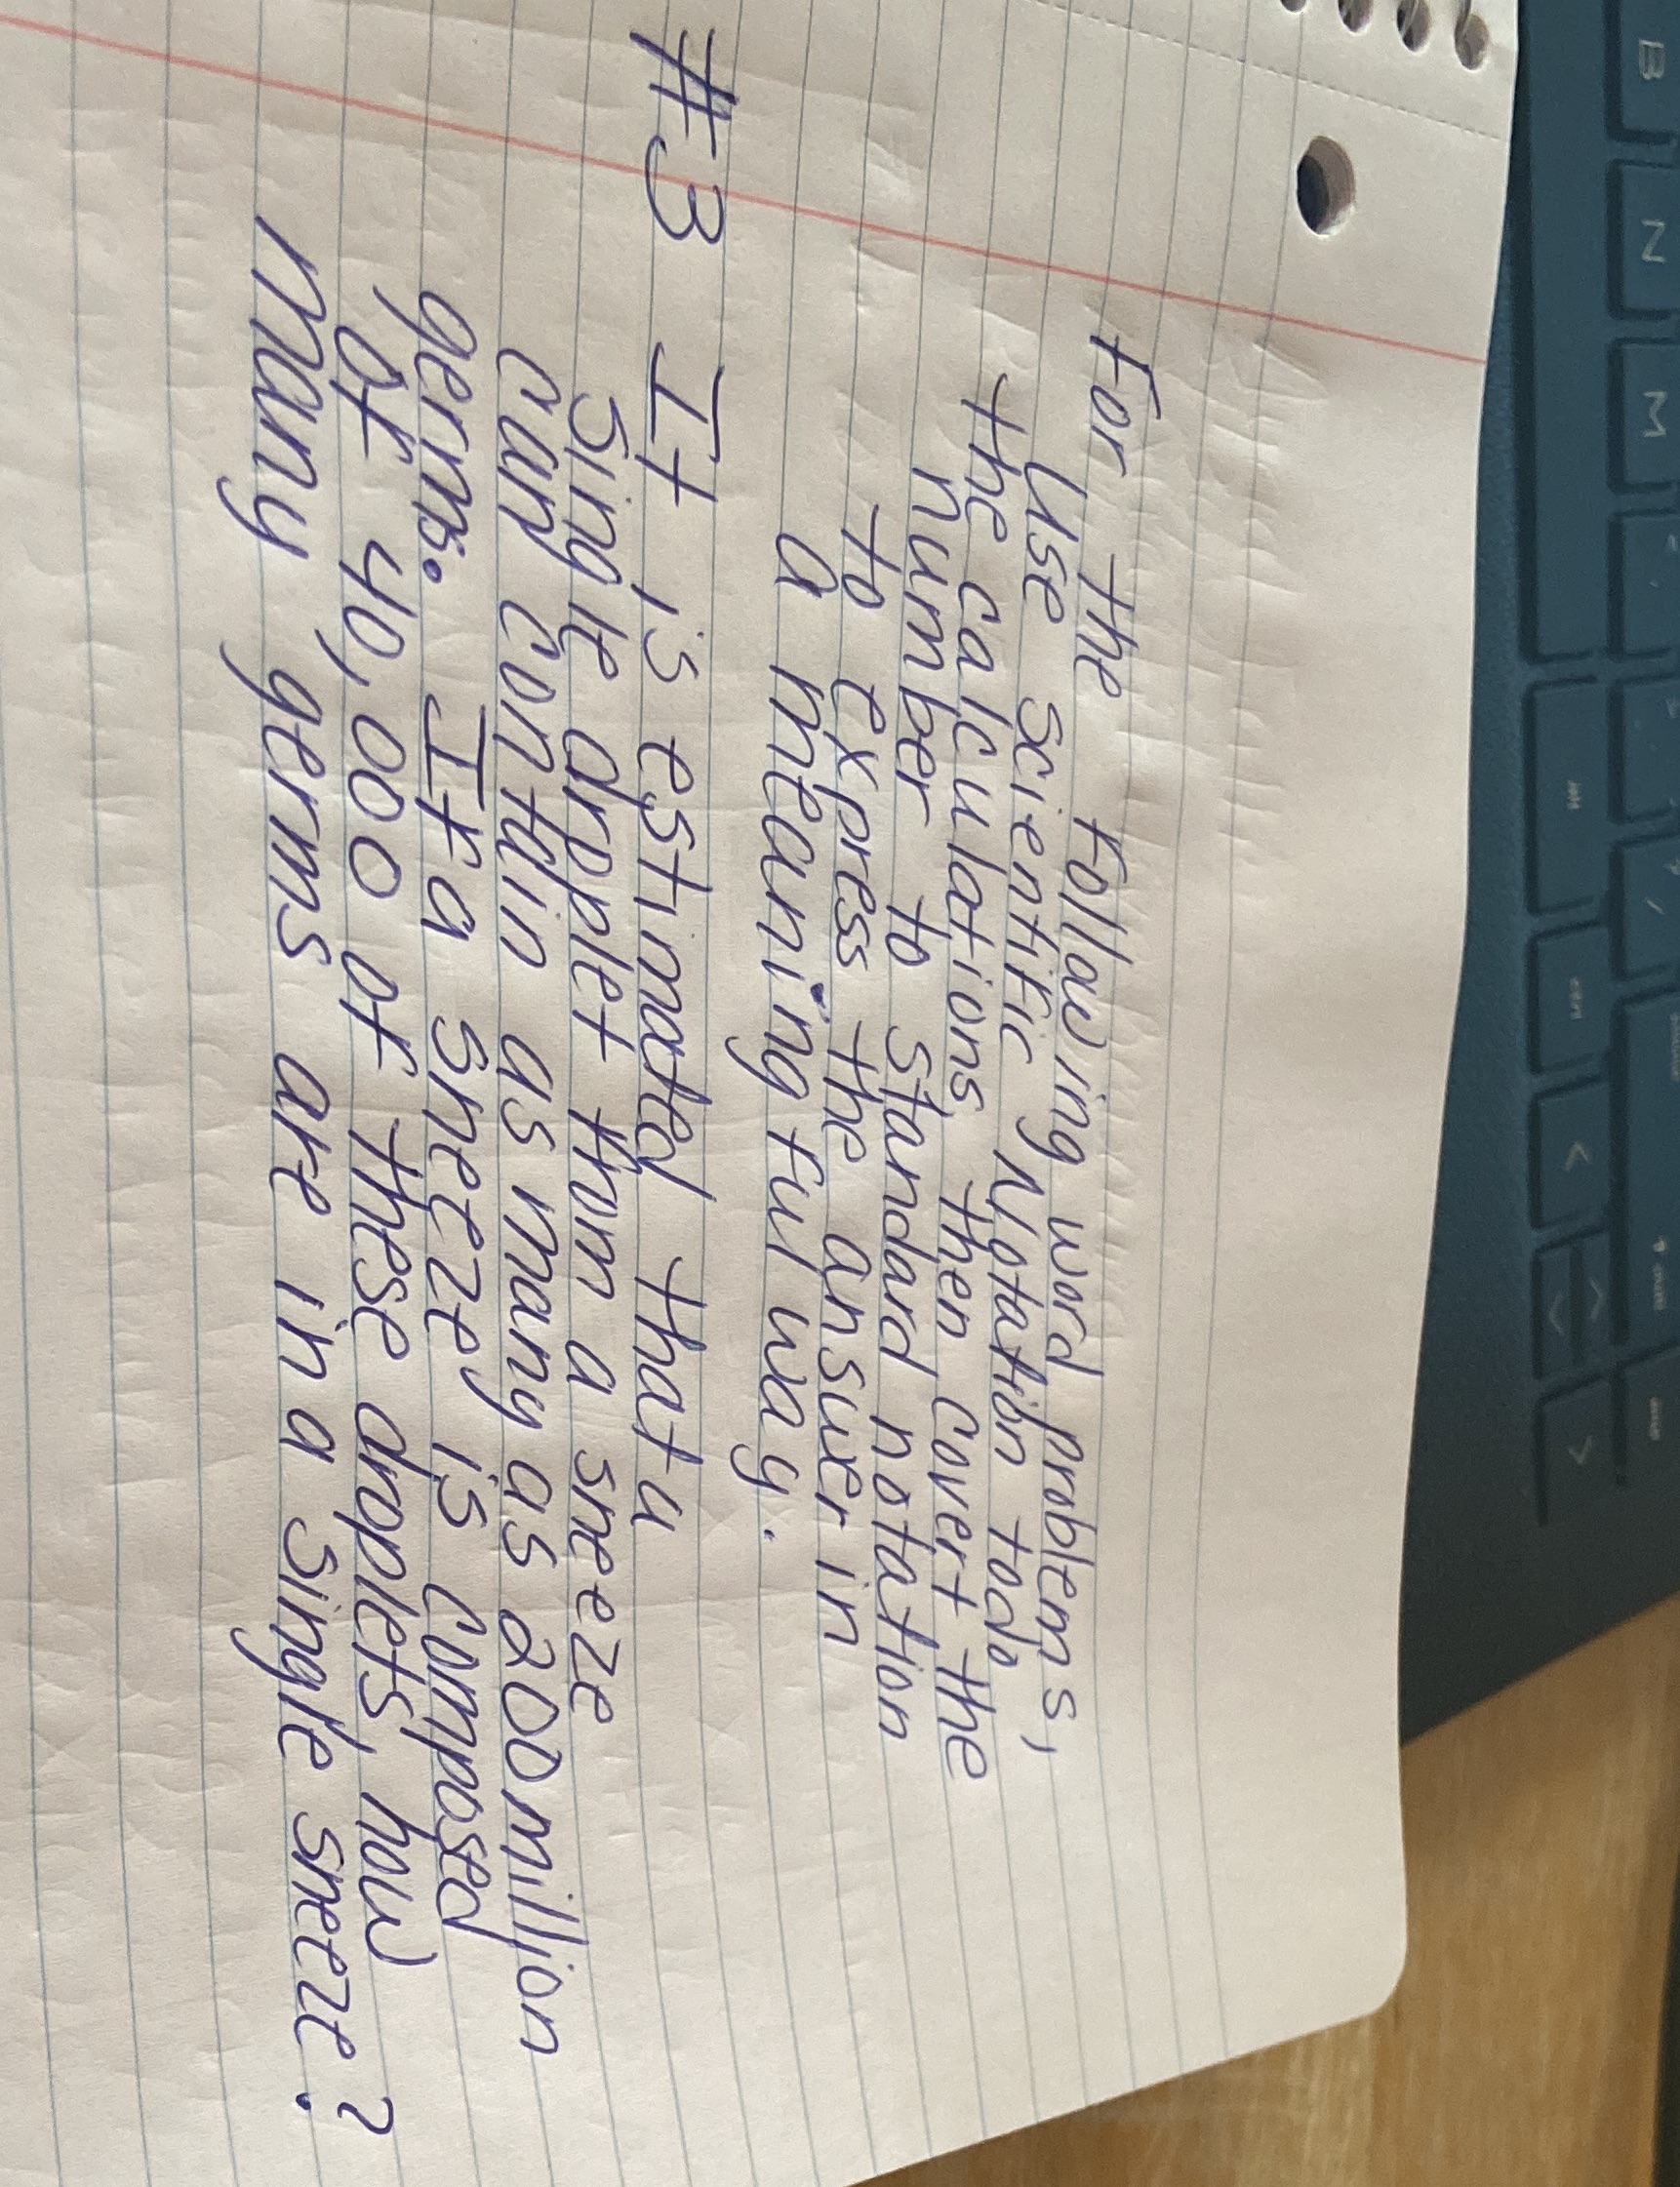 For the following word problems,
Use scientific Notation todo
the calculations then covert the
number to standard notation
to express the answer in
a meaningful way.
#3 It is estimated that a
single drplet from a sneeze
can contain as many as 200 million
germs. If a sneeze is composed
of 40,000 of these droplets how
many germs are in a single sneeze?
B
N
M